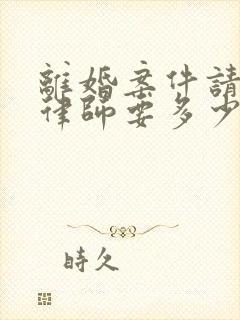 離婚案件請
律師要多少
時久